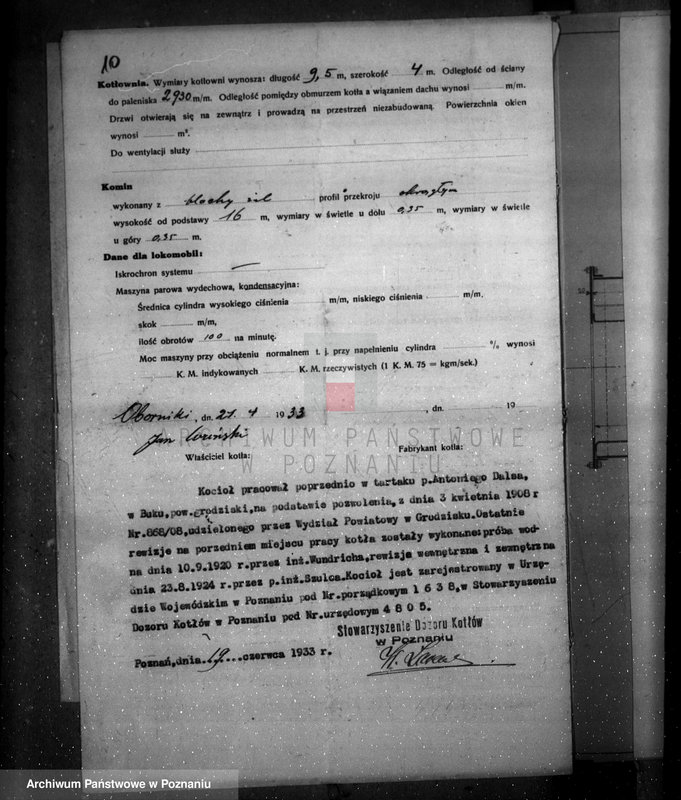 10
Kotłownia. Wymiary kotłowni wynoszą: długość 9,5 m, szerokość 4 m. Odległość od ściany
do paleniska 2930 m/m. Odległość pomiędzy obmurzem kotła a wiązaniem dachu wynosi m/m.
Drzwi otwierają się na zewnątrz i prowadzą na przestrzeń niezabudowaną. Powierzchnia okien
wynosi m².
Do wentylacji służy
Komin
wykonany z blachy żel profil przekroju okrągłym
wysokość od podstawy 16 m, wymiary w świetle u dołu 0,35 m, wymiary w świetle
u góry 0,35 m.
Dane dla lokomobil:
Iskrochron systemu —
Maszyna parowa wydechowa, kondensacyjna:
Średnica cylindra wysokiego ciśnienia m/m, niskiego ciśnienia m/m,
skok m/m,
ilość obrotów 100 na minutę.
Moc maszyny przy obciążeniu normalnem t. j. przy napełnieniu cylindra % wynosi
K. M. indykowanych K. M. rzeczywistych (1 K. M. 75 = kgm/sek.)
Oborniki, dn. 21. 4 1933 , dn. 19
Jan
Właściciel kotła: Fabrykant kotła:
ARCHIWUM PAŃSTWOWE
W POZNANIU
Kocioł pracował poprzednio w tartaku p.Antoniego Dalsa,
w Buku,pow.grodziski,na podstawie pozwolenia,z dnia 3 kwietnia 1908 r
Nr.868/08,udzielonego przez Wydział Powiatowy w Grodzisku.Ostatnie
rewizje na porzedniem miejscu pracy kotła zostały wykonane:próba wod-
na dnia 10.9.1920 r.przez inż.Wundricha,rewizja wewnętrzna i zewnętrzna
dnia 23.8.1924 r.przez p.inż.Szulca.Kocioł jest zarejestrowany w Urzę-
dzie Wojewódzkim w Poznaniu pod Nr.porządkowym 1 6 3 8,w Stowarzyszeniu
Dozoru Kotłów w Poznaniu pod Nr.urzędowym 4 8 0 5.
Stowarzyszenie Dozoru Kotłów
w Poznaniu
Poznań,dnia.19...czerwca 1933 r.
Archiwum Państwowe w Poznaniu